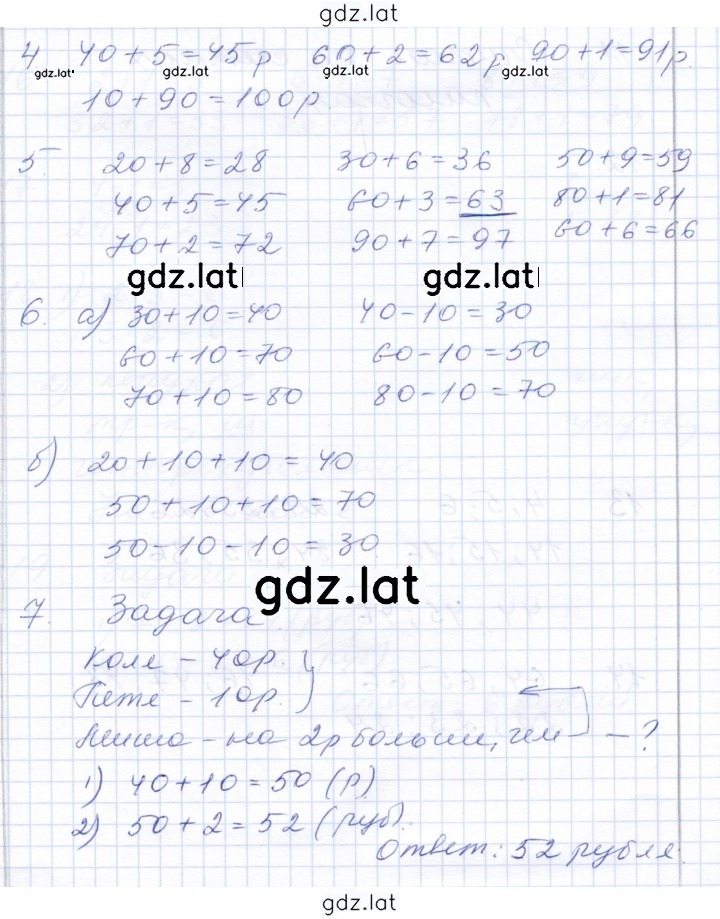 gdz.lat
4 40+5=45р 60+2=62р 90+1=91р.
gdz.lat gdz.lat gdz.lat
10+90=100р
5. 20+8=28 30+6=36 50+9=59
40+5=45 60+3=63 80+1=81
70+2=72 90+7=97 60+6=66
gdz.lat gdz.lat
6. а) 30+10=40 40-10=30
60+10=70 60-10=50
70+10=80 80-10=70
б) 20+10+10=40
50+10+10=70
50-10-10=30
gdz.lat
7. Задача.
Коле - 40р.
Пете - 10р.
на 2р больше, чем - ?
1) 40+10=50 (р)
2) 50+2=52 (руб).
Ответ: 52 рубля.
gdz.lat